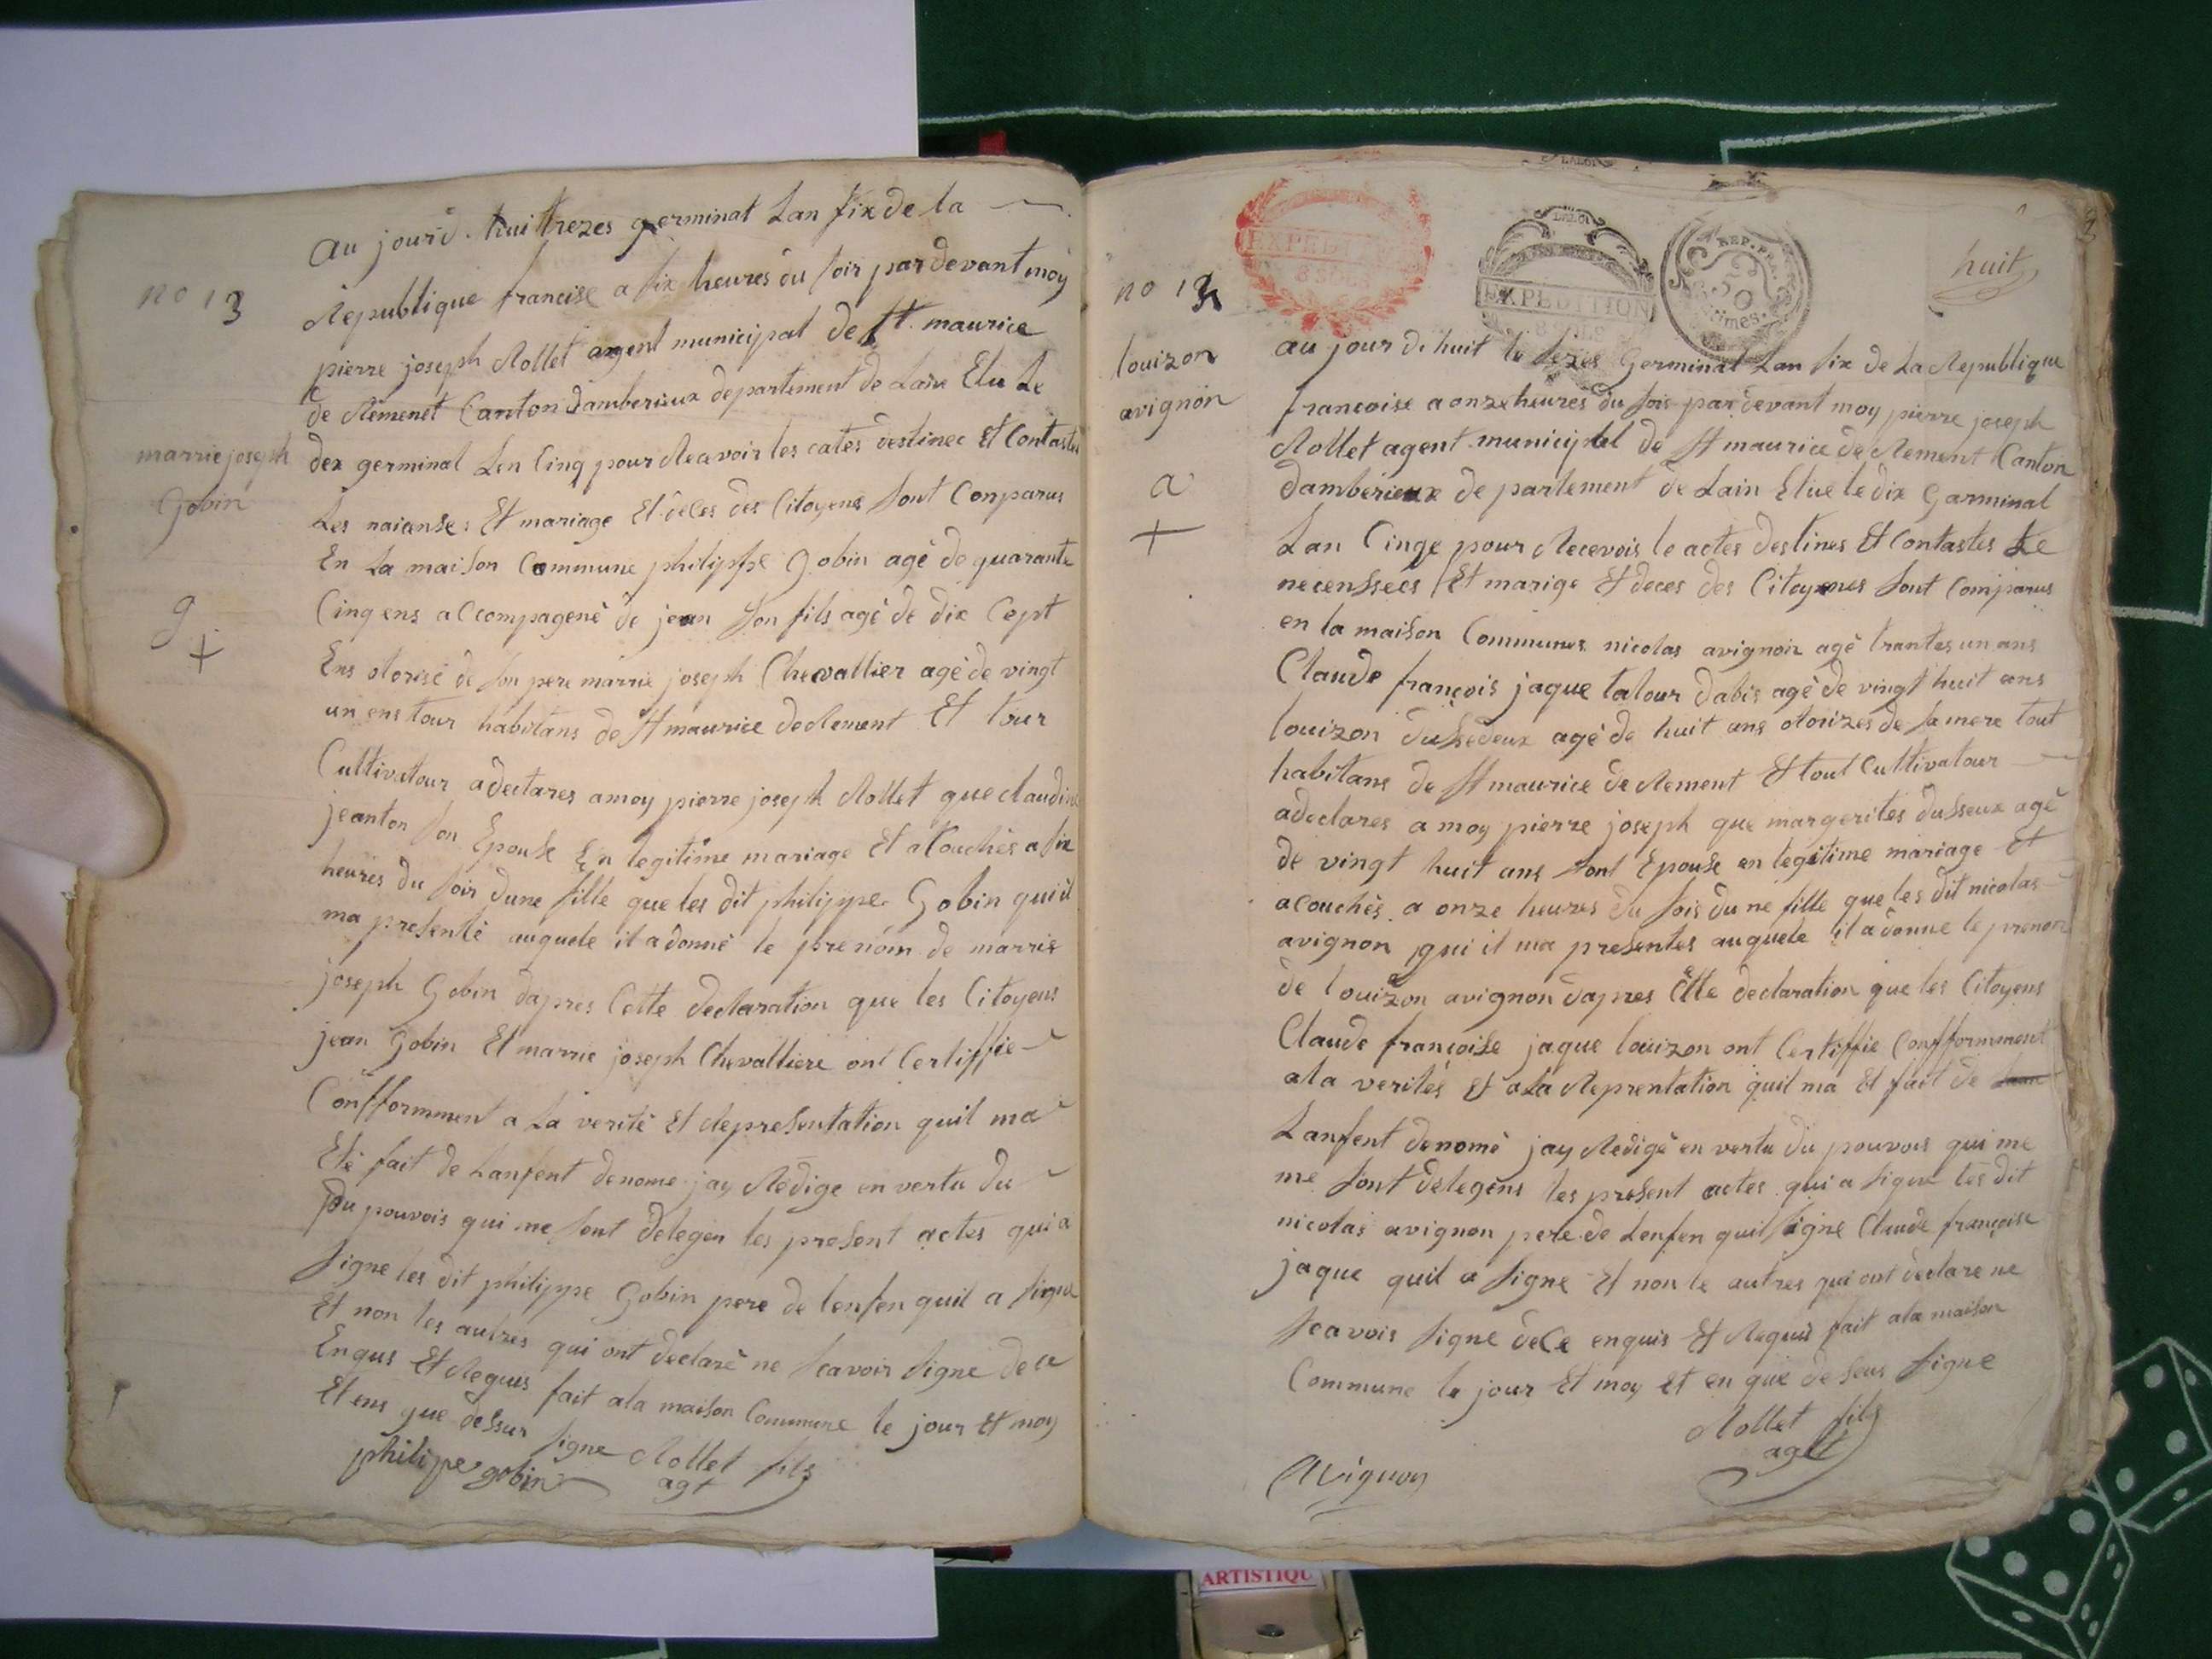 au jourd. hui trezes germinal Lan six de la
no 13
Republique francise a six heures du soir par devant moy
pierre joseph Rollet agent municipal de St. maurice
de Remenet Canton damberieux departement de Lain Elu Le
marrie joseph
Gobin
dex germinal Len Cinq pour Recevoir les cates destinec Et Contastes
Les naianses Et mariage Et deces des Citoyens sont Conparus
En La maison Commune philippe gobin agé de quarante
g
+
Cinq ens accompagené de jean son fils agé de dix Cept
Ens otorisé de son pere marrie joseph Chevallier agé de vingt
un ens tour habitans de St maurice de Rement Et tour
Cultivatour a declares a moy pierre joseph Rollet que claudine
jeanton son Epouse En legitime mariage Et acouchés a six
heures du soir dune fille que les dit philippe Gobin qui il
ma presenté auquele il a donné le prenom de marrie
joseph Gobin dapres Cette declaration que les Citoyens
jean Gobin Et marrie joseph Chevalliere ont Certiffie
Confformment a La verité Et depresentation quil ma
Eté fait de Lanfent denome jay Redige en vertu du
du pouvois qui me sont delegen les present actes qui a
signe les dit philippe Gobin pere de lenfen quil a signe
Et non les autres qui ont declaré ne scavoir signe de ce
Enqus Et Requis fait ala maison Commune le jour Et moy
Et ens que dessur signe Rollet fils
agt
philipe gobin
EXPEDITION
8 SOLS
LA LOI
EXPEDITION
REP. FRA.
50
huit
no 13
louizon
avignon
a
+
au jour di huit le sezes Germinal Lan six de La Republique
francoise a onze heures du sois par devant moy pierre joseph
Rollet agent municiplel de St maurice de Rement Canton
damberieux de partement de Lain Elue le dix Garminal
Lan Cinqe pour Recevois le actes destines Et Contastes Le
necenssees Et marige Et deces des Citoyenes sont Comparus
en la maison Communes nicolas avignon agé trantes un ans
Claude françois jaque talour dabis agé de vingt huit ans
louizon dussedeux agé de huit ans otorizes de sa mere tout
habitans de St maurice de Rement Et tout Cultivatour
a declares a moy pierre joseph que margerites dusseux agé
de vingt huit ans sont Epouse en legitime mariage Et
acouchés a onze heures du sois du ne fille que les dit nicolas
avignon qui il ma presentes auquele il a donne le prenon
de louizon avignon dapres Cette declaration que les Citoyens
Claude françoise jaque louizon ont Certiffie Confformment
ala verités Et ala Reprentation quil ma Et fait de
Lanfent denomé jay Redigé en vertu du pouvois qui me
me sont delegens les present actes qui a signe les dit
nicolas avignon pere de Lenfen quil signe Claude françoise
jaque quil a signe Et non le autres qui ont declare ne
scavois signe dece enquis Et Requis fait ala maison
Commune le jour Et moy Et en que deseus signe
Rollet fils
agt
avignon
ARTISTIQU